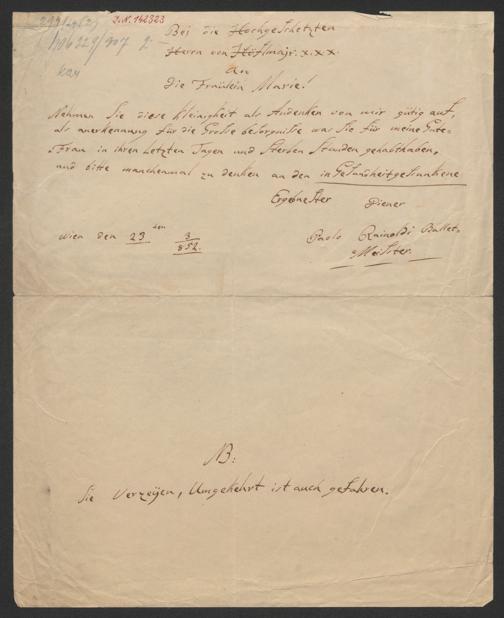 J.N. 142323
Bei die Hochgeschetzten
Herrn von Höflmajr. x.x.x.
An
die Fräulein Marie!
Nehmen Sie diese Kleinigkeit als Andenken von mir gütig auf,
als anerkennung für die Große besorgniße was Sie für meine Gute
Frau in ihren Letzten Tagen und Sterben Stunden gehabthaben,
und bitte manchenmal zu denken an den in Gesundheitgetrunkene
Ergebnester Diener
Wien den 23ten 3/852.
Paolo Rainoldi Ballet-
Meister.
NB:
Sie Verzeijen, Umgekehrt ist auch gefahren.